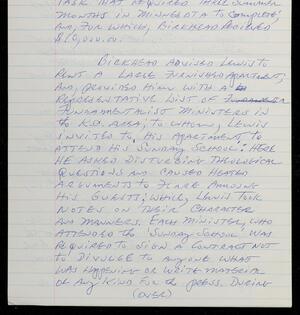 TASK THAT REQUIRED THREE SUMMER
MONTHS IN MINNESOTA TO COMPLETE,
AND, FOR WHICH, BIRKHEAD RECEIVED
$10,000.00.
BIRKHEAD ADVISED LEWIS TO
RENT A LARGE FURNISHED APARTMENT,
AND, PROVIDED HIM WITH A
REPRESENTATIVE LIST OF
FUNDAMENTALIST MINISTERS IN
THE K.C. AREA, TO WHOM, LEWIS
INVITED TO, HIS APARTMENT TO
ATTEND HIS "SUNDAY SCHOOL". HERE
HE ASKED DISTURBING THEOLOGICAL
QUESTIONS AND CAUSED HEATED
ARGUMENTS TO FLARE AMONG
HIS GUESTS, WHILE, LEWIS TOOK
NOTES ON THEIR CHARACTER
AND MANNERS. EACH MINISTER, WHO
ATTENDED THE "SUNDAY SCHOOL" WAS
REQUIRED TO SIGN A CONTRACT NOT
TO DIVULGE TO ANYONE WHAT
WAS HAPPENING OR WRITE MATERIAL
OF ANY KIND FOR THE PRESS. DURING
(OVER)